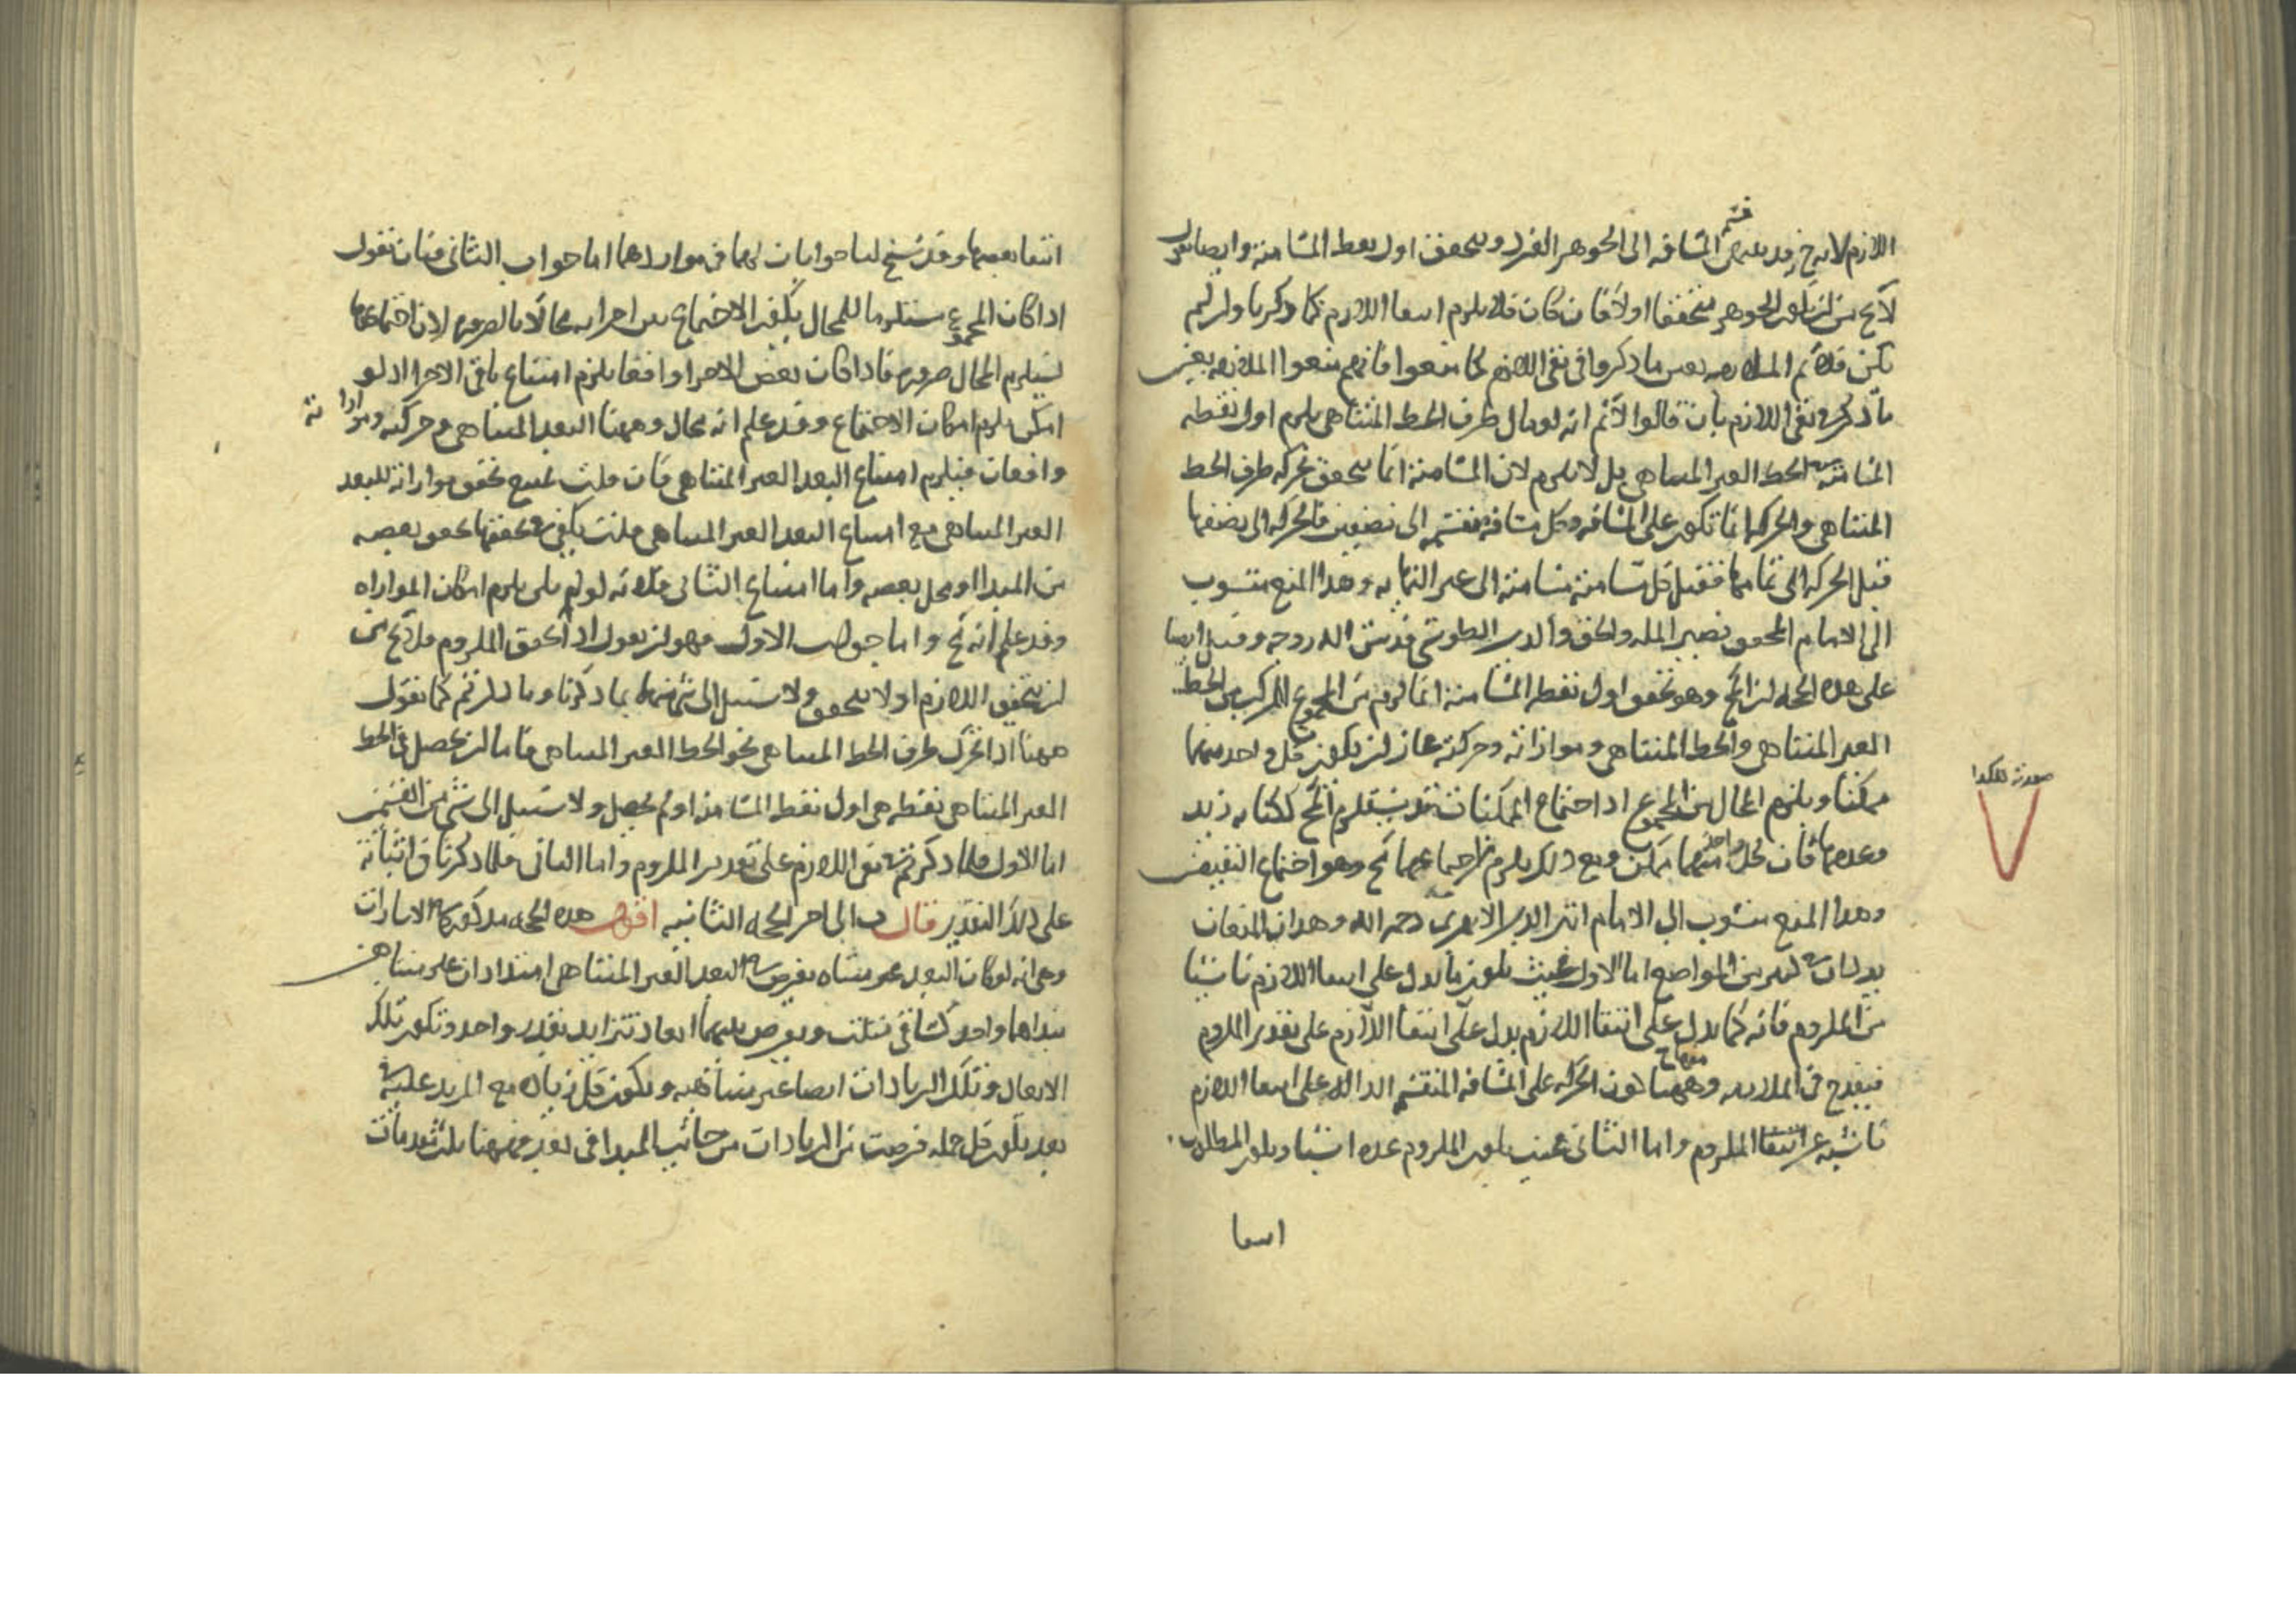 اللازم لانه ح المسافه الى الجوهر الفرد و يتحقق اول نقط المسامتة و ايضا نقول
لا يخ من ان يكون الجوهر متحققا اولا فان كان فلا يلزم انتفا اللازم كما ذكرنا وان لم
يكن فلا تم الملازمه بعين ما ذكروا في نفي اللازم كما منعوا فانهم منعوا الملازمه بعين
ما ذكر في نفي اللازم بان قالوا لا نم انه لو مال طرف الخط المتناهى يلزم اول نقطه
المسامتة في الخط الغير المتناهى بل لا يلزم لان المسامتة انما يتحقق بحركه طرف الخط
المتناهي والحركه انما تكون على المسافه وكل مسافه منقسمه الى نصفين فالحركه الى نصفها
قبل الحركه الى تمامها فقبل كل مسامتة مسامتة الى غير النهايه وهذا المنع منسوب
الى الامام المحقق نصير المله والحق والدين الطوسي قدس الله روحه و قيل ايضا
على هذه الحجه ان المح وهو تحقق اول نقط المسامتة انما لزم من المجموع المركب من الخط
الغير المتناهي والخط المتناهي و موازاته وحركته فجاز ان يكون كل واحد منهما
ممكنا و يلزم المحال من المجموع اذ اجتماع الممكنات قد يستلزم المح ككتابه زيد
وعدمها فان كل واحد منهما ممكن ومع ذلك يلزم من اجتماعهما مح وهو اجتماع النقيضين
وهذا المنع منسوب الى الامام اثير الدين الابهري رحمه الله وهذان المنعان
يردان في كثير من المواضع اما الاول فحيث يكون ما يدل على انتفا اللازم ناشيا
من الملزوم فانه كما يدل على انتفا اللازم يدل على انتفا اللازم على تقدير الملزوم
فيقدح في الملازمه وههنا كون الحركه على المسافه المنقسمه الداله على انتفا اللازم
ناشيه عن انتفا الملزوم واما الثاني فحيث يكون الملزوم عده اشيا و يكون المطلوب
انتفا
صورته هكذا
انتفا بعضها و قد سنح لنا جوابان لهما في مواردهما اما جواب الثاني فبان نقول
اذا كان المجموع مستلزما للمحال يكون الاجتماع بين اجزايه محالا بالضروره لان اجتماعها
يستلزم المحال ضروره فاذا كان بعض الاجزا واقعا يلزم امتناع باقي الاجزا اذ لو
امكن يلزم امكان الاجتماع وقد علم انه محال وههنا البعد المتناهي وحركته وموازاته
واقعان فيلزم امتناع البعد الغير المتناهي فان قلت تمنع تحقق موازاته للبعد
الغير المتناهي مع امتناع البعد الغير المتناهي قلت يكفي في تحققها تحقق بعضه
من المبدا او محل بعضه واما امتناع الثاني فلانه لو لم يلزم امكان الموازاه
وقد علم انه مح واما جواب الاول فهو ان نقول اذا تحقق الملزوم فلا يخ من
ان يتحقق اللازم او لا يتحقق ولا سبيل الى شئ منهما بما ذكرنا وما ذكرتم كما نقول
ههنا اذا تحرك طرف الخط المتناهي نحو الخط الغير المتناهي فاما ان يحصل في الخط
الغير المتناهي نقطه هي اول نقط المسامتة او لم يحصل ولا سبيل الى شئ من القسمين
اما الاول فلما ذكرتم في نفي اللازم على تقدير الملزوم واما الثاني فلما ذكرنا في اثباته
على ذلك التقدير قال الى اخر الحجه الثانيه اقول هذه الحجه مذكوره في الاشارات
وهي انه لو كان البعد غير متناه نفرض في البعد الغير المتناهي امتدادان غير متناهيين
مبداهما واحد كساقي مثلث و نفرض بينهما ابعاد تتزايد بقدر واحد و تكون تلك
الابعاد و تلك الزيادات ايضا غير متناهيه و يكون كل زياده مع المزيد عليه في
بعد يكون كل جمله فرضت من الزيادات من جانب المبدا في بعد فههنا ثلث مقدمات